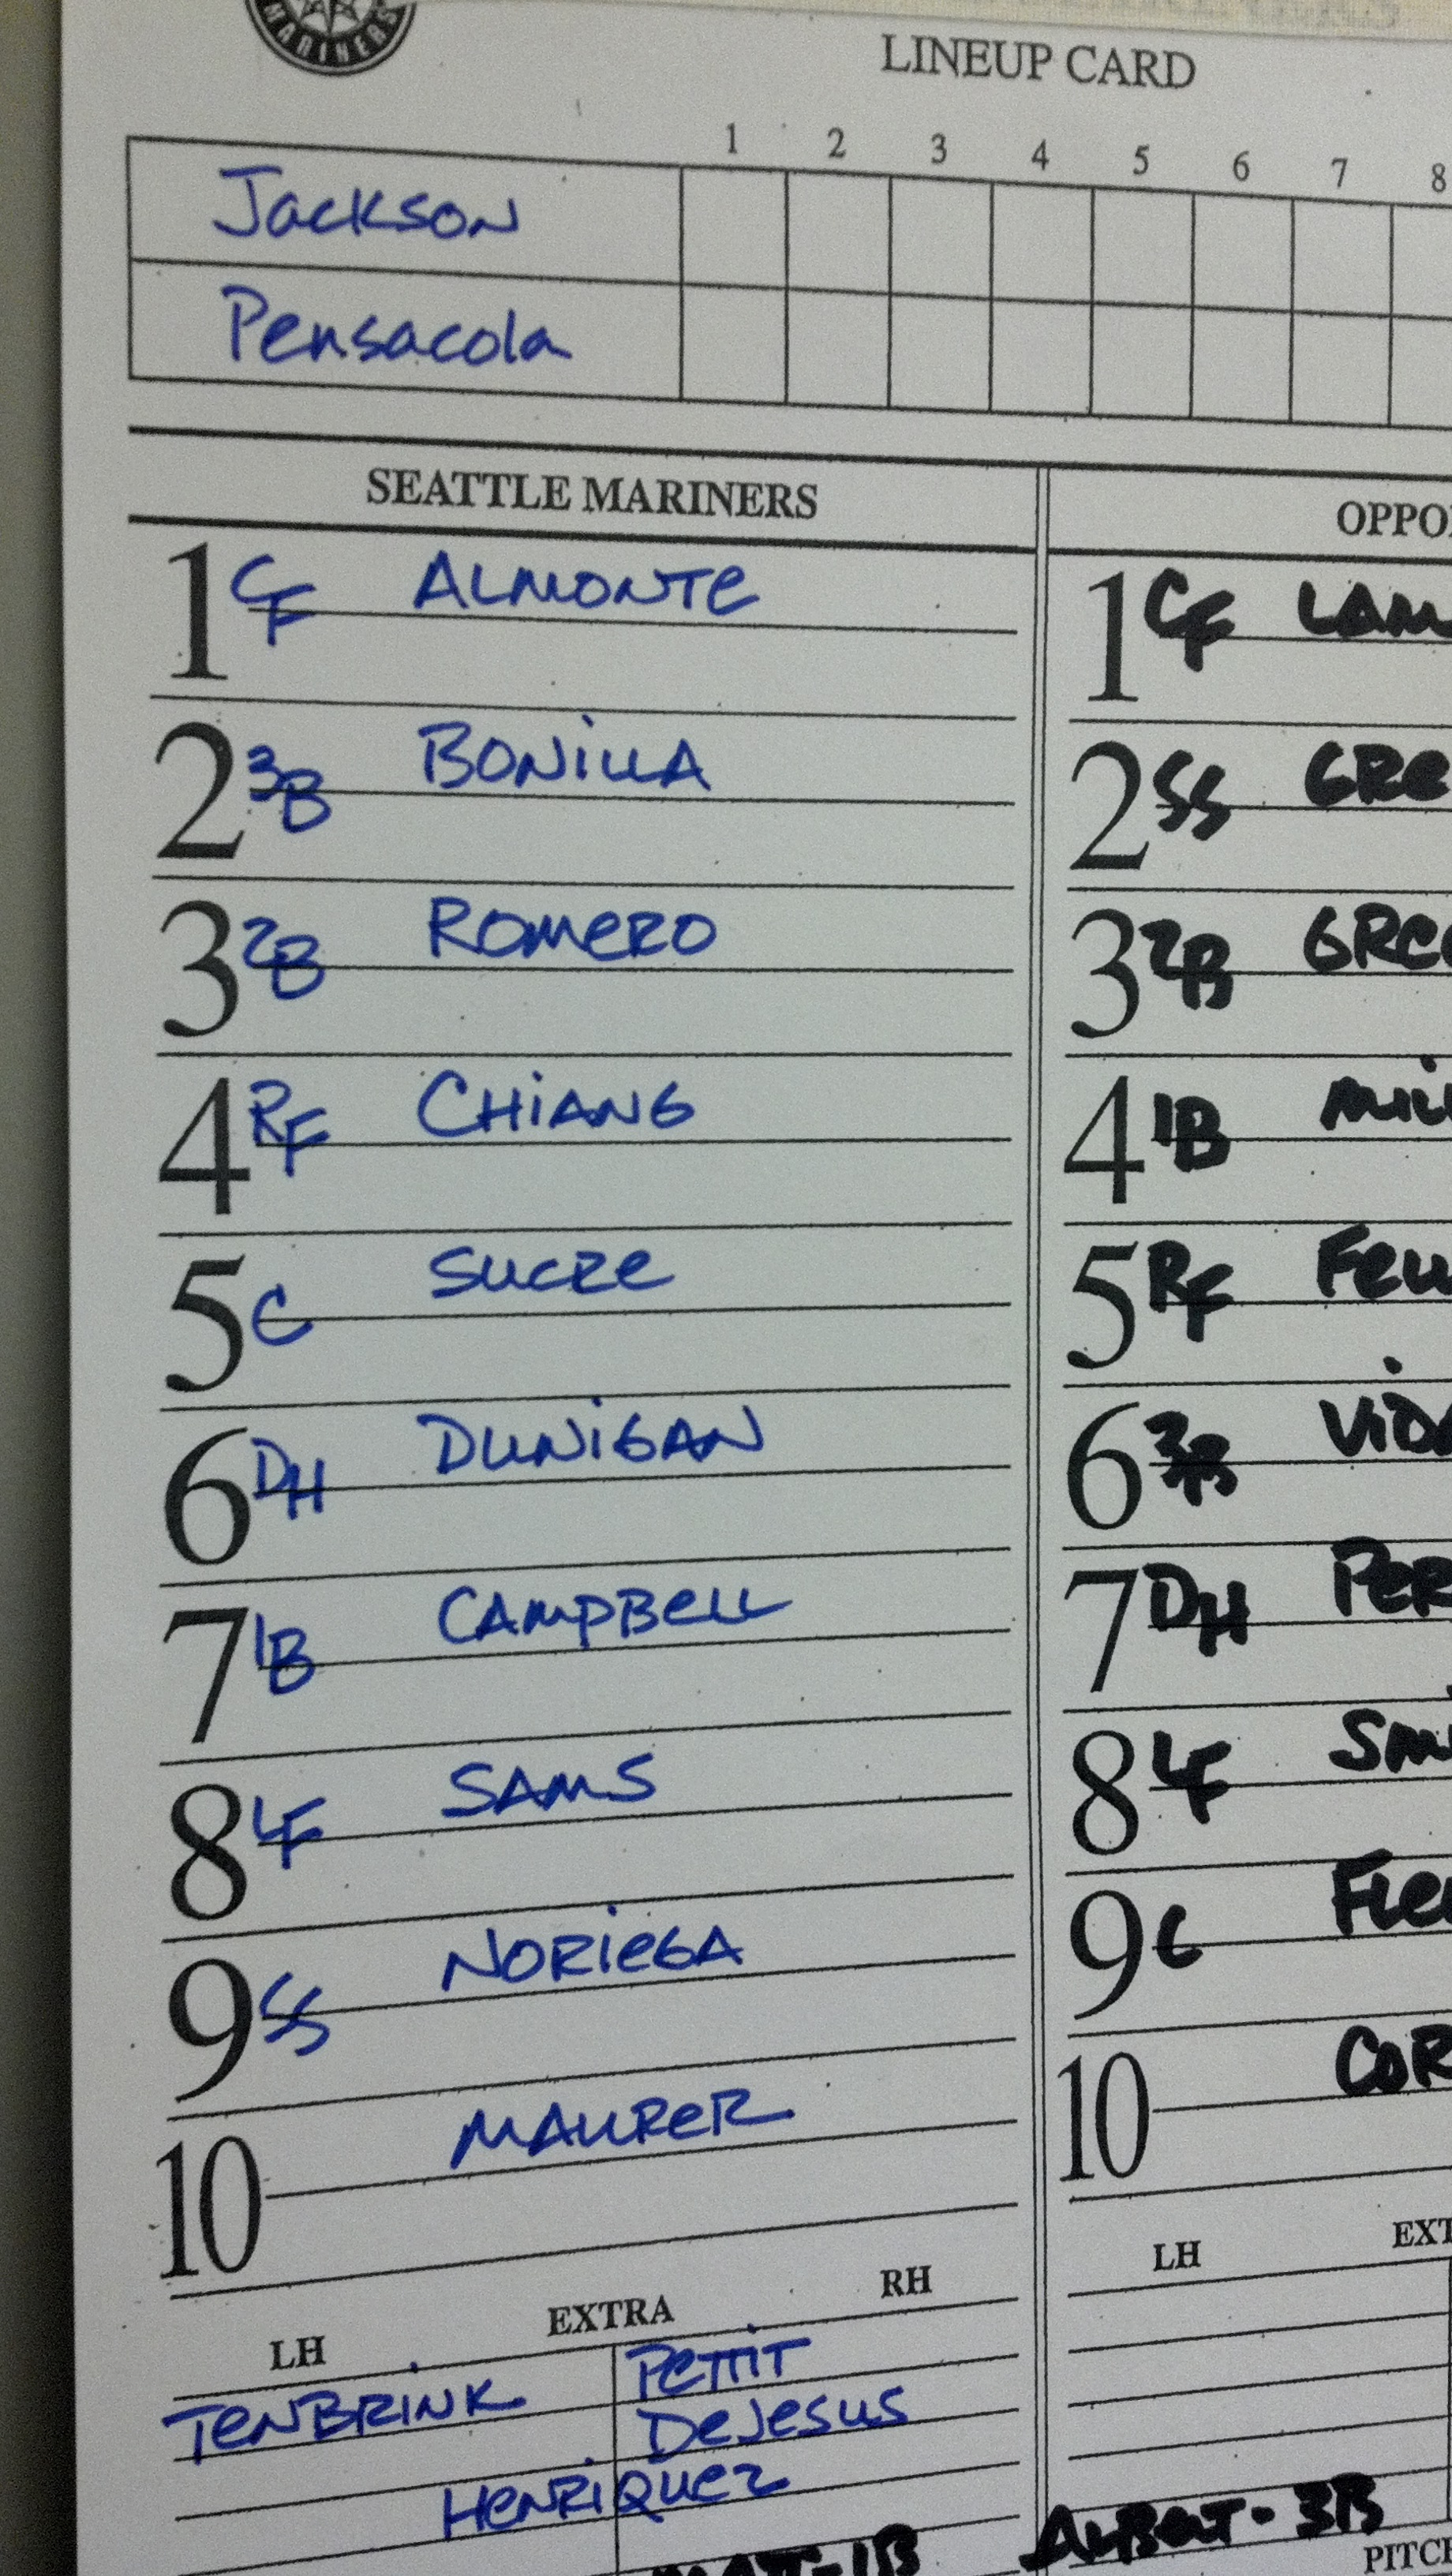 MARINERS
LINEUP CARD
1 2 3 4 5 6 7 8
Jackson
Pensacola
SEATTLE MARINERS
1 CF ALMONTE
2 3B BONILLA
3 2B ROMERO
4 RF CHIANG
5 C SUCRE
6 DH DUNIGAN
7 1B CAMPBELL
8 LF SAMS
9 SS NORIEGA
10 MAURER
LH EXTRA RH
TENBRINK PETTIT
DEJESUS
HENRIQUEZ
OPPO
1 CF LAM
2 SS GRE
3 2B GRE
4 1B MIL
5 RF FELL
6 3B VID
7 DH PER
8 LF SM
9 C FLE
10 COR
LH EXT
-1B
-3B
PITCH